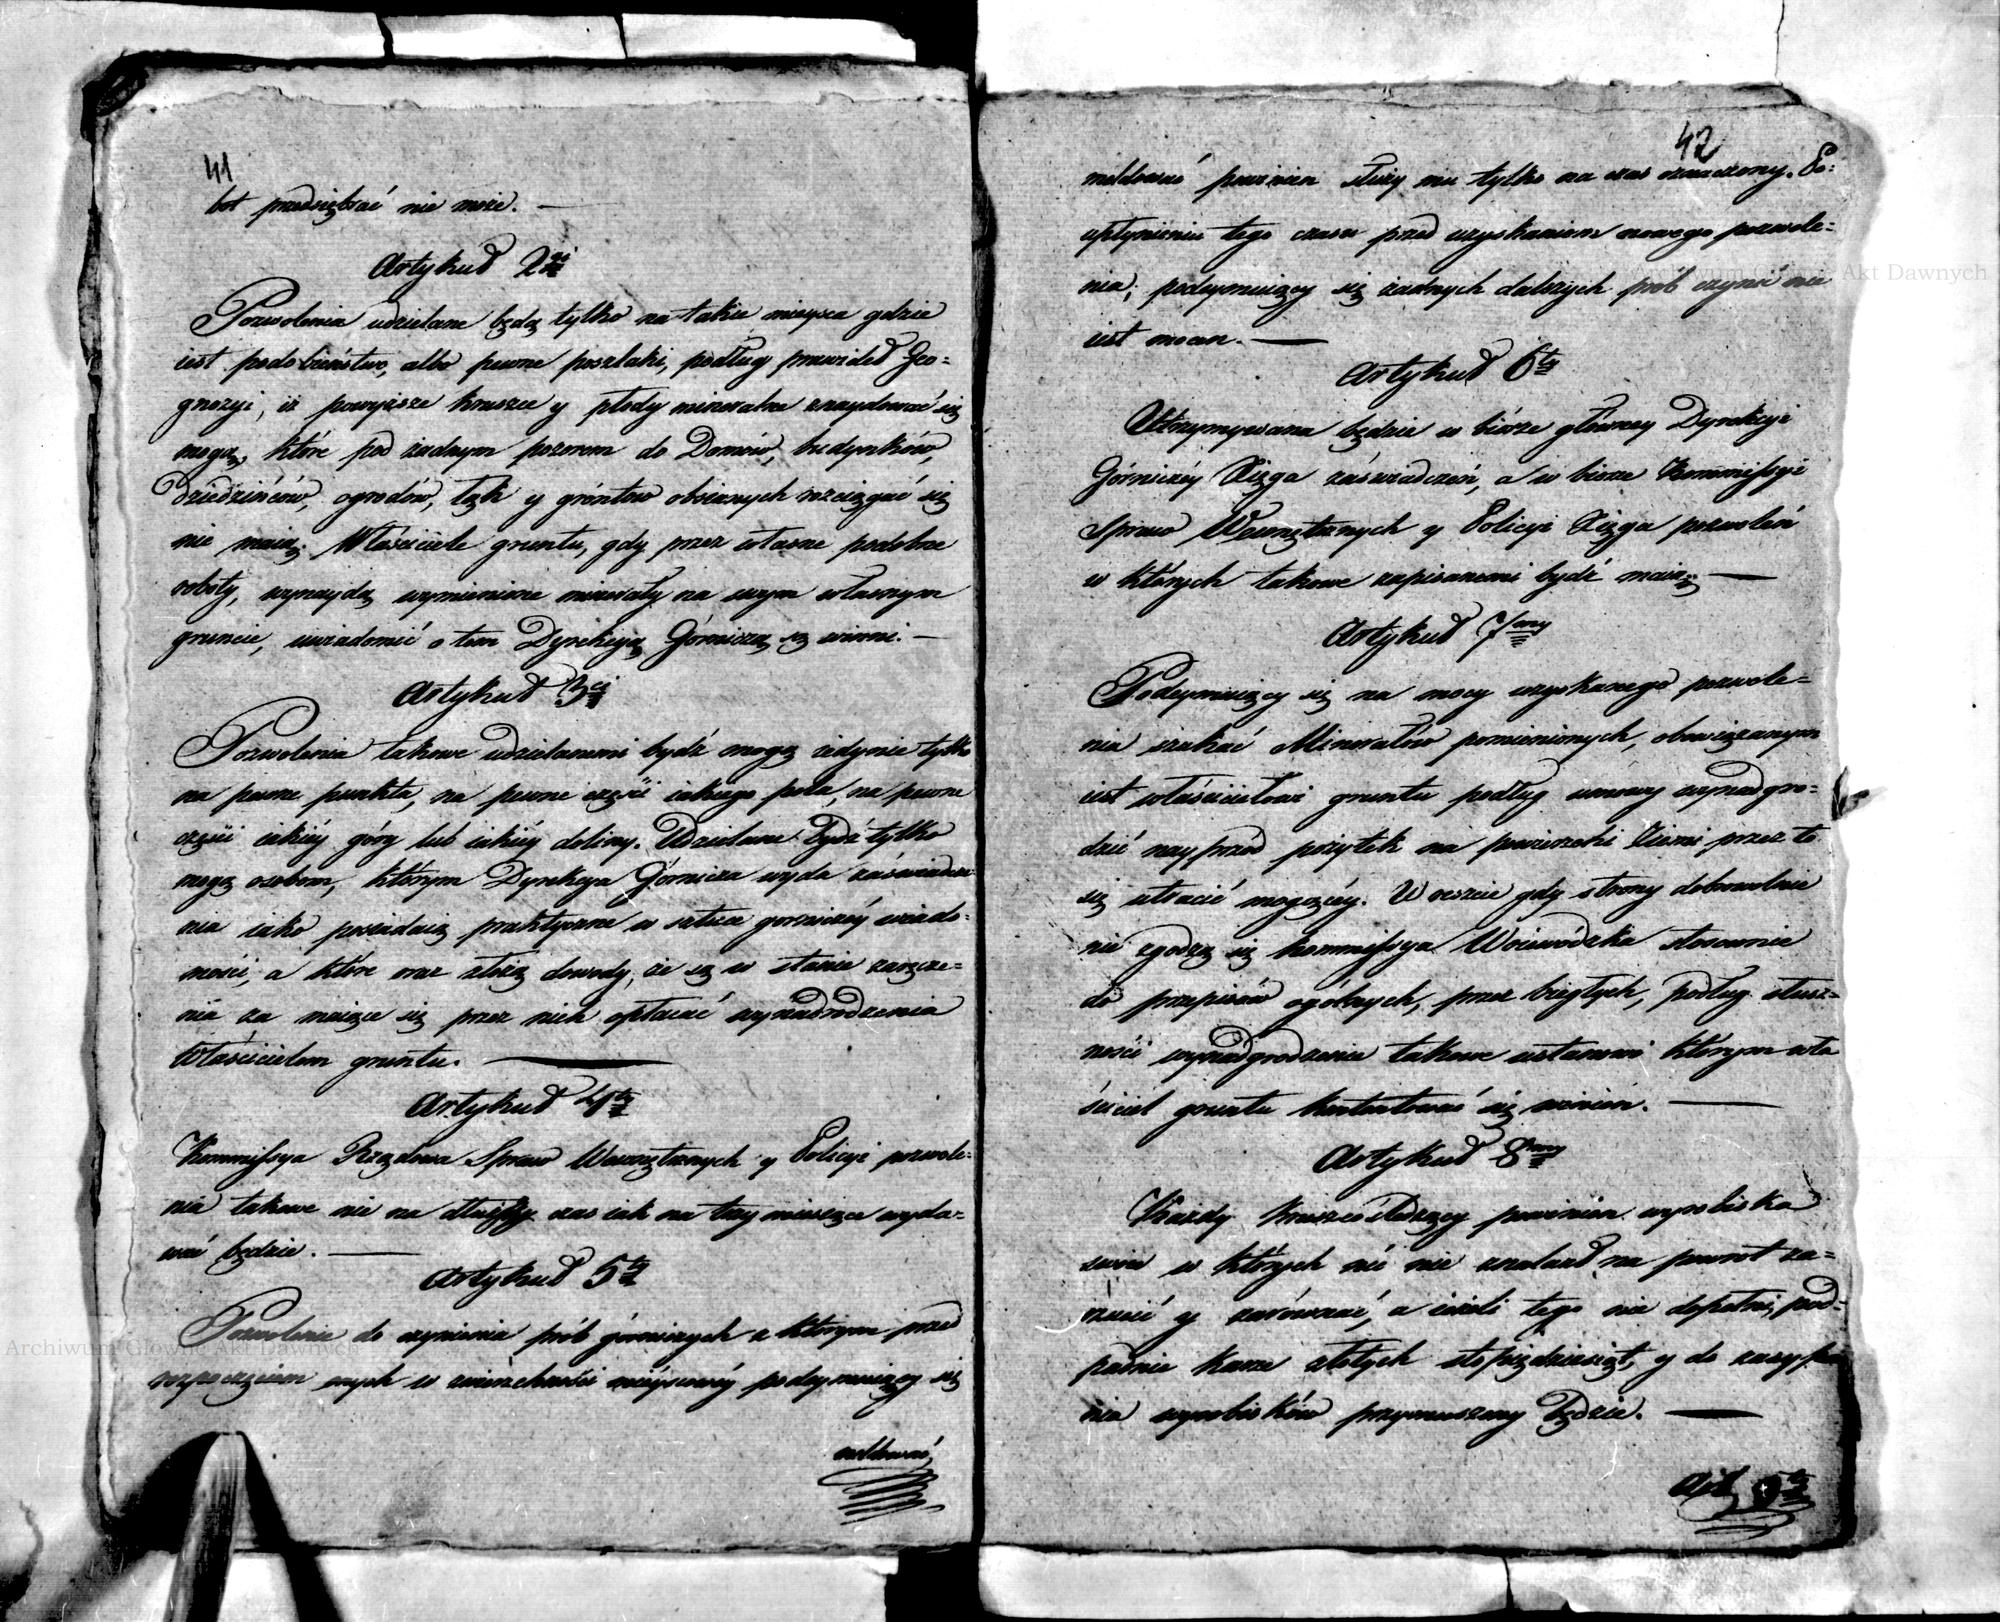 41
bot przedsiębrać nie może. —
Artykuł 2gi
Pozwolenia udzielane będą tylko na takie mieysca gdzie
iest podobieństwo, albo pewne poszlaki, podług prawideł Geo=
gnozyi, iż powyższe kruszce y płody mineralne znaydować się
mogą, które pod żadnym pozorem do Domów, budynków,
Dziedzińców, ogrodów, tąk y gróntow obsianych rozciągać się
nie maią. Właściciele gruntu, gdy przez własne podobne
roboty, wynaydą wymienione minerały na swym własnym
gruncie, uwiadomić o tem Dyrekcyą Górniczą są winni. —
Artykuł 3ci
Pozwolenia takowe udzielanemi bydź mogą iedynie tylko
na pewne punkta, na pewne części iakiego pola, na pewne
części iakiéy góry lub iakiéy doliny. Udzielane bydź tylko
mogą osobom, którym Dyrekcya Górnicza wyda zaświadcze
nia iako posiadaią praktyczne w sztuce górniczéy wiado=
mości, a które oraz złożą dowody, że są w stanie zaręcze=
nia za maiące się przez nich opłacać wynadgrodzenia
Właścicielom gruntu. —
Artykuł 4ty
Kommissya Rządowa Spraw Wewnętrznych y Policyi pozwole=
nia takowe nie na dłuższy czas iak na trzy miesiące wyda=
wać będzie. —
Artykuł 5ty
Pozwolenie do czynienia prób górniczych z którym przed
rozpoczęciem onych w zwierzchności mieyscowéy podeymuiący się
meldować
42
meldować powinien służy mu tylko na czas oznaczony. Po=
upłynieniu tego czasu przed uzyskaniem nowego pozwole=
nia, podeymuiący się żadnych dalszych prób czynić nie
iest mocen. —
Artykuł 6ty
Utrzymywana będzie w biórze główney Dyrekcyi
Górniczéy Xięga zaświadczeń, a w biorze Kommissyi
Spraw Wewnętrznych y Policyi Xięga pozwoleń
w których takowe zapisanemi bydź maią. —
Artykuł 7my
Podeymuiący się na mocy uzyskanego pozwole=
nia szukać Minerałów pomienionych, obowiązanym
iest właścicielowi gruntu podług umowy wynadgro=
dzić nayprzód pożytek na powierzchni Ziemi przez to
się utracić mogący. W reszcie gdy strony dobrowolnie
nie zgodzą się kommissya Woiewódzka stosownie
do przepisów ogólnych, przez biegłych, podług słusz=
ności wynadgrodzenie takowe ustanowi którym wła
ściciel gruntu kontentować się winien. —
Artykuł 8my
Każdy kruszco śledzący powinien wyrobiska
swoie w których nić nie znalazł na powrót za=
rzucić y zarównać, a ieżeli tego nie dopełni, pod=
padnie karze złotych stopięćdziesiąt, y do zasypa
nia wyrobisków przymuszony będzie. —
Art 9ty
Archiwum Główne Akt Dawnych
Archiwum Główne Akt Dawnych